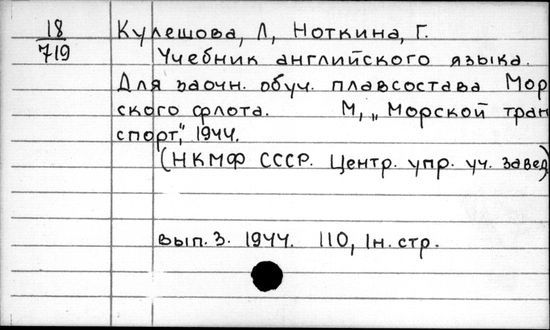 18/719 Кулешова, Л, Ноткина, Г.
Учебник английского языка.
Для заочн. обуч. плавсостава Мор
ского флота. М, „Морской тран
спорт," 1944.
(НКМФ СССР. Центр. упр. уч. завед)
вып. 3. 1944. 110, 1н. стр.